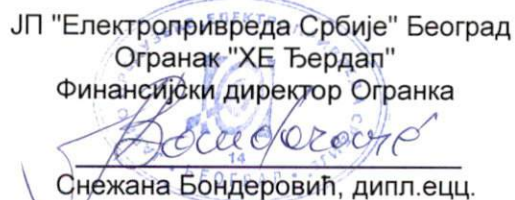 ЈП "Електропривреда Србије" Београд
Огранак "ХЕ Ђердап"
Финансијски директор Огранка
14
Снежана Бондеровић, дипл.ецц.